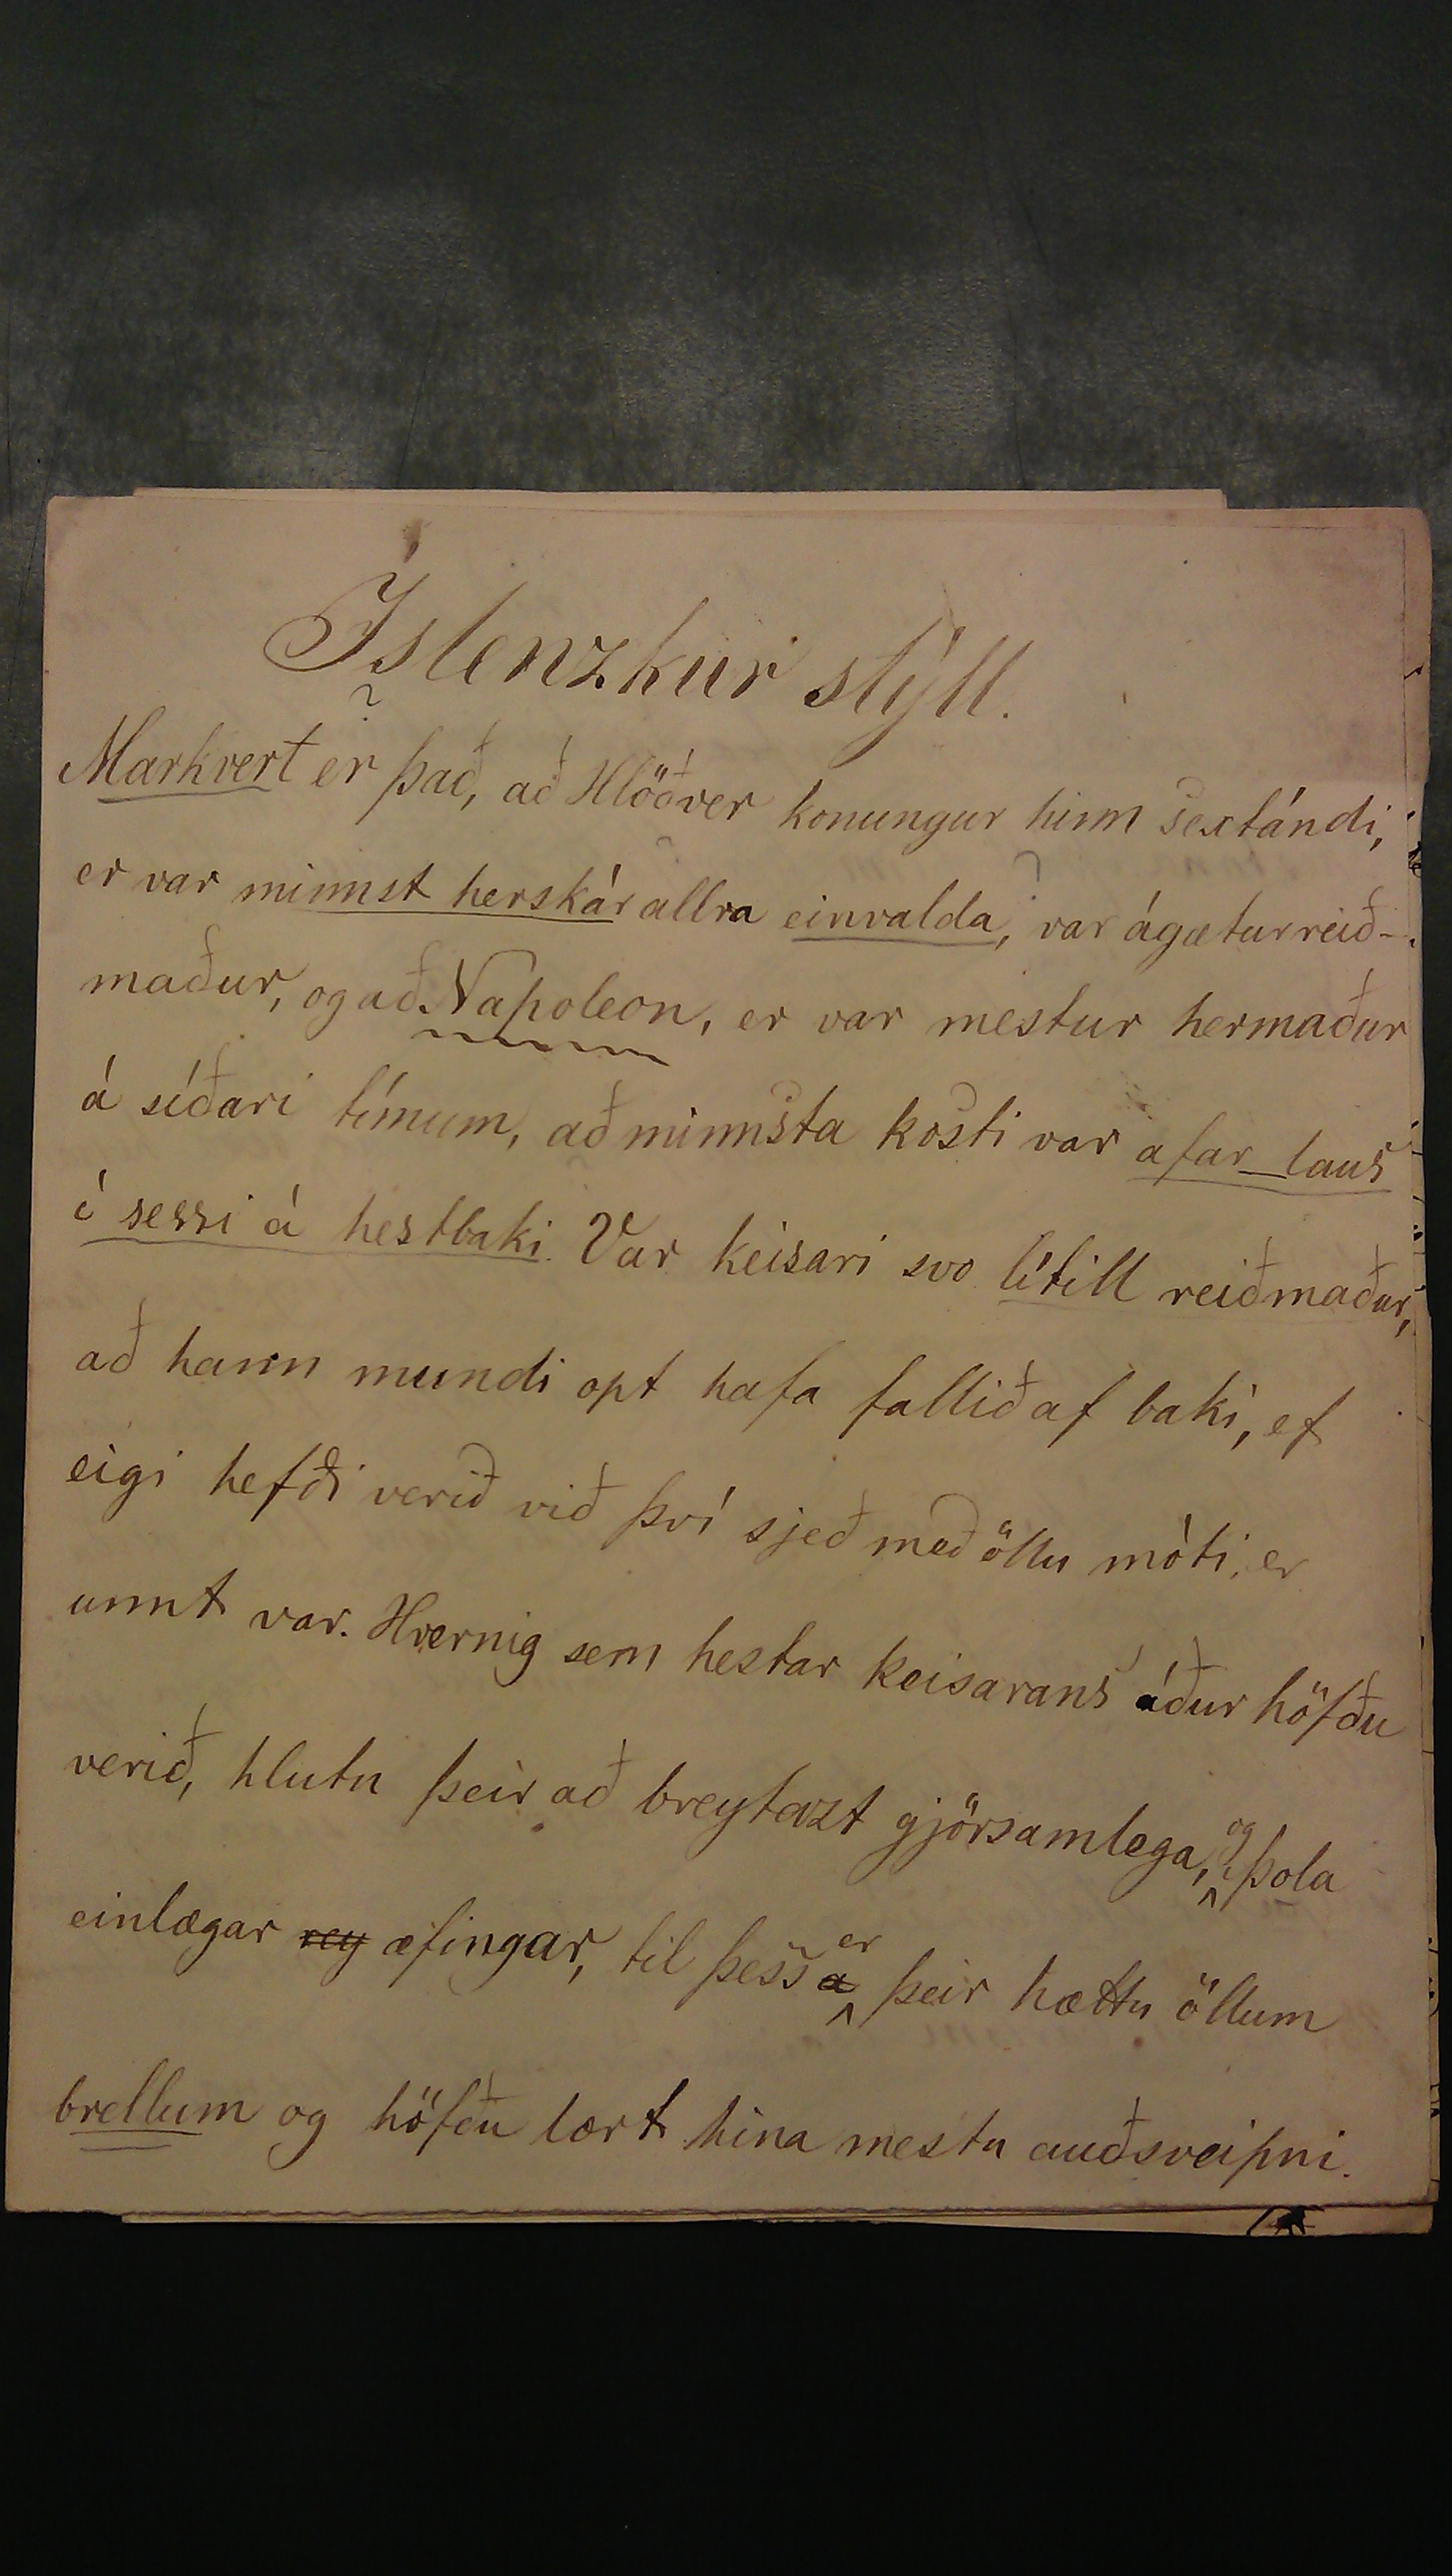 Íslenzkur stýll.
Markvert er það, að Hlöðver konungur hinn sextándi,
er var minnst herskár allra einvalda, var ágætur reið-
maður, og að Napoleon, er var mestur hermaður
á síðari tímum, að minnsta kosti var afar laus
í sessi á hestbaki. Var keisari svo lítill reiðmaður,
að hann mundi opt hafa fallið af baki, ef
eigi hefði verið við því sjeð með öllu móti, er
unnt var. Hvernig sem hestar keisarans áður höfðu
verið, hlutu þeir að breytazt gjörsamlega, og þola
einlægar rey æfingar, til þess a er þeir hættu öllum
brellum og höfðu lært hina mestu auðsveipni.